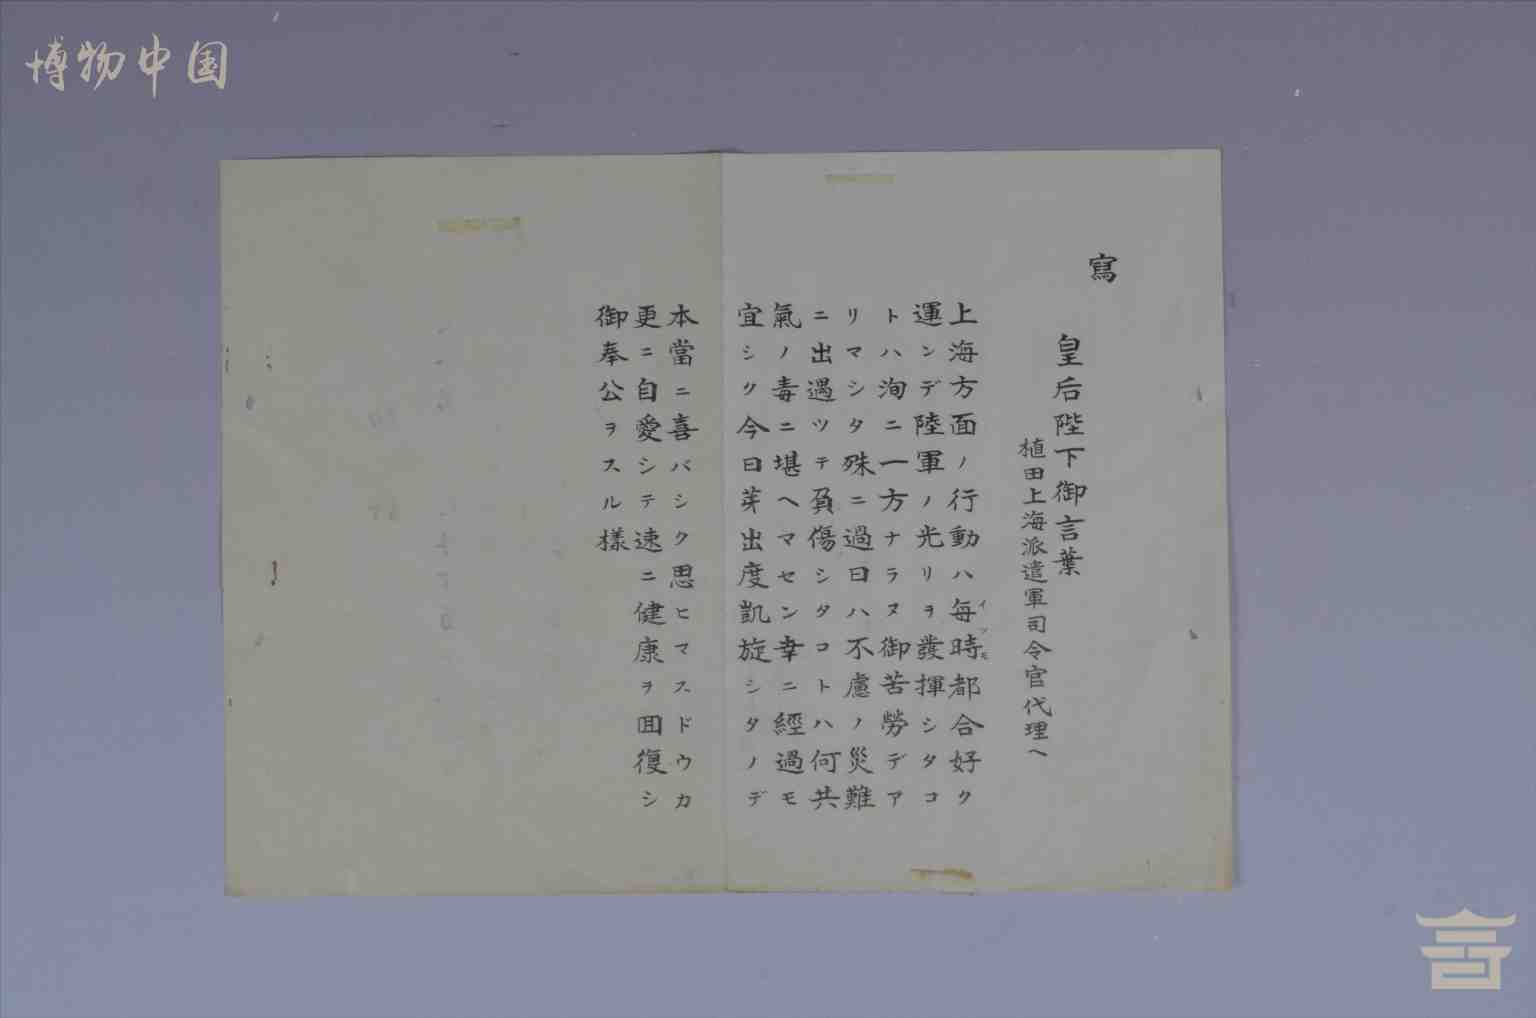 博物中国
寫
皇后陛下御言葉
植田上海派遣軍司令官代理へ
上海方面ノ行動ハ每時都合好ク
イツモ
運ンデ陸軍ノ光リヲ發揮シタコ
トハ洵ニ一方ナラヌ御苦勞デア
リマシタ殊ニ過日ハ不慮ノ災難
ニ出遇ツテ負傷シタコトハ何共
氣ノ毒ニ堪ヘマセン幸ニ經過モ
宜シク今日芽出度凱旋シタノデ
本當ニ喜バシク思ヒマスドウカ
更ニ自愛シテ速ニ健康ヲ囬復シ
御奉公ヲスル樣